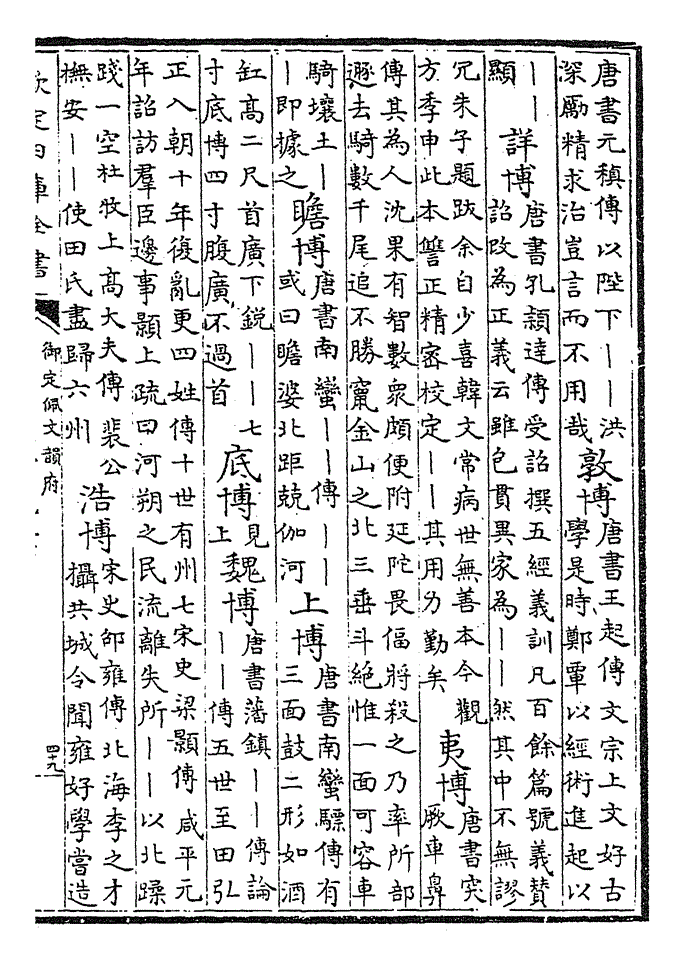 唐書元稹傳以陛下丨丨洪
深勵精求治豈言而不用哉
敦博
唐書王起傳文宗上文好古
學是時鄭覃以經術進起以
丨丨
顯
詳博
唐書孔頴達傳受詔撰五經義訓凡百餘篇號義贊
詔改為正義云雖包貫異家為丨丨然其中不無謬
冗朱子題跋余自少喜韓文常病世無善本今觀
方季申此本讐正精密校定丨丨其用力勤矣
夷博
唐書突
厥車鼻
傳其為人沈果有智數衆頗便附延陀畏偪將殺之乃率所部
遯去騎數千尾追不勝竄金山之北三垂斗絶惟一面可容車
騎壤土丨
丨即據之
瞻博
唐書南蠻丨丨傳丨丨
或曰瞻婆北距兢伽河
上博
唐書南蠻驃傳有
三面鼓二形如酒
缸髙二尺首廣下鋭丨丨七
寸底博四寸腹廣不過首
底博
見
上
魏博
唐書藩鎮丨丨傳論
丨丨傳五世至田弘
正入朝十年復亂更四姓傳十世有州七宋史梁顥傳咸平元
年詔訪羣臣邊事顥上疏曰河朔之民流離失所丨丨以北蹂
踐一空杜牧上髙大夫傳裴公
撫安丨丨使田氏盡歸六州
浩博
宋史邵雍傳北海李之才
攝共城令聞雍好學嘗造
欽定四庫全書
御定佩文韻府
四十九